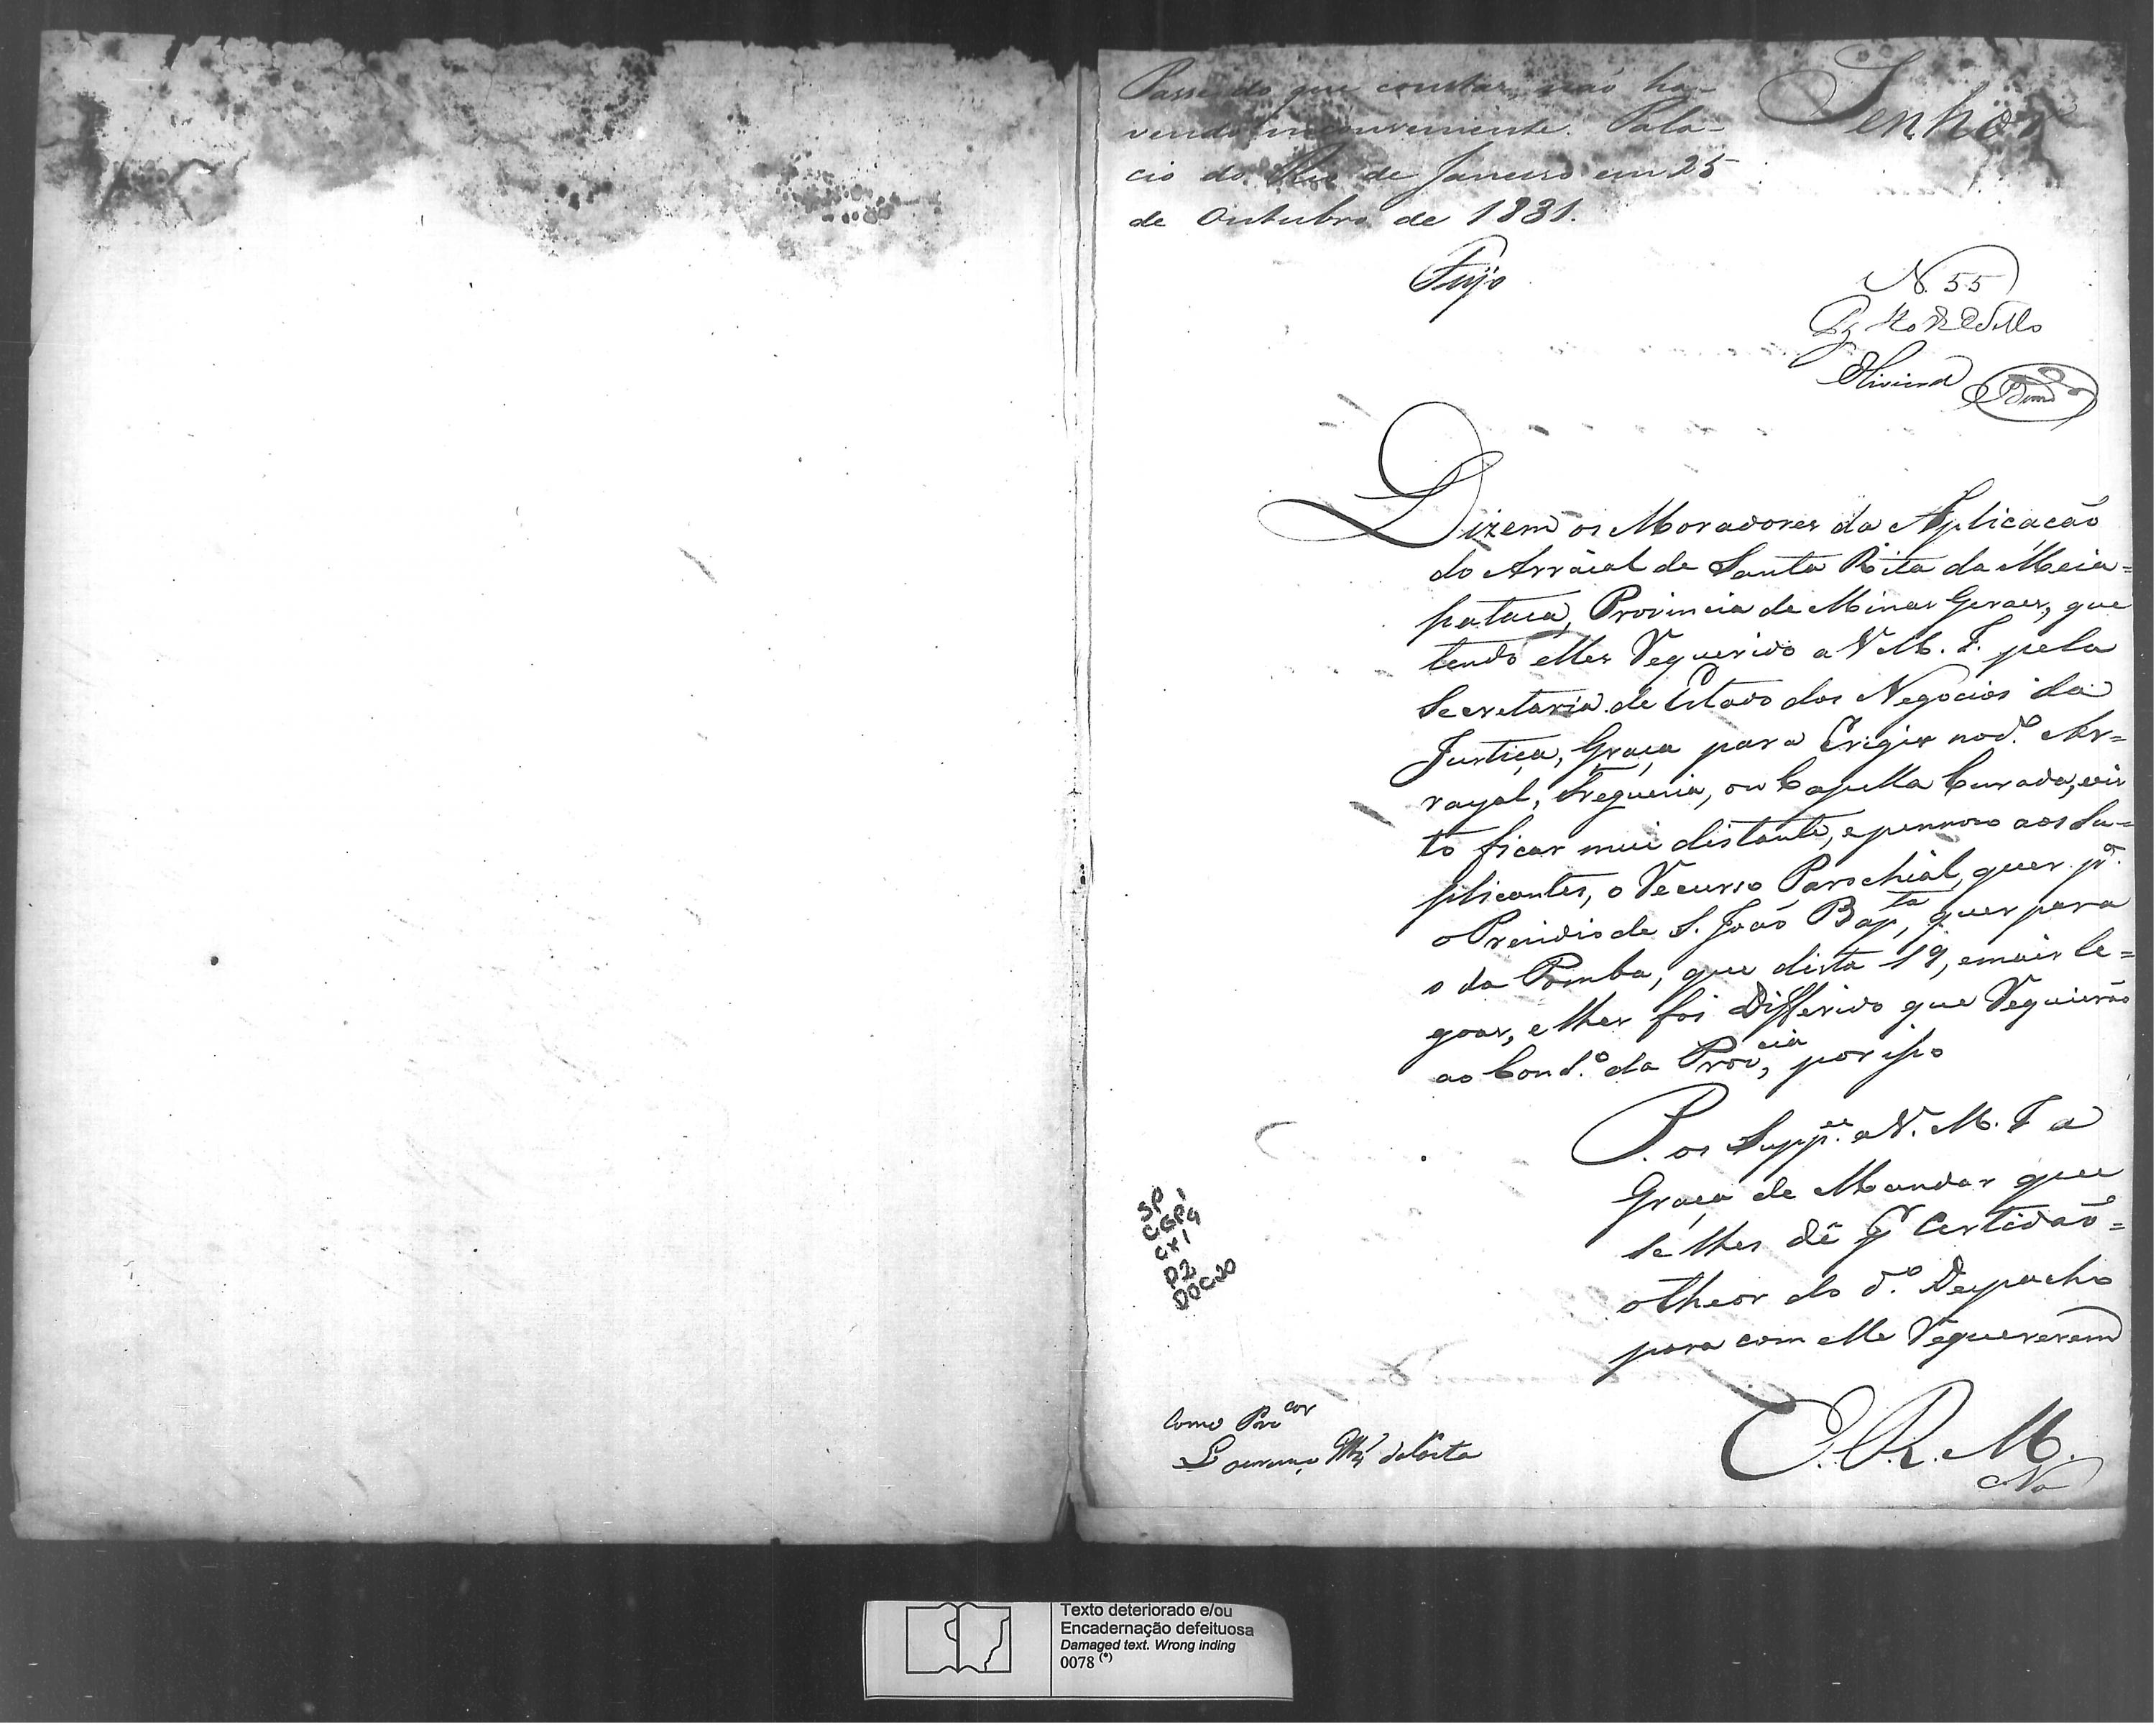 Passe do que constar, não ha-
vendo inconveniente. Pala-
cio do Rio de Janeiro em 25
de Outubro de 1831.
Feijó
Senhor
N. 55
Pg
Oliveira
Dizem os Moradores da Aplicacão
do Arraial de Santa Rita da Meia=
pataca, Provincia de Minas Geraes, que
tendo elles Requerido a V. M. I. pela
Secretaria de Estado dos Negocios da
Justiça, Graça para Erigir no d.º Ar=
rayal, Freguesia, ou Capella Curada, vis
to ficar mui distante, e pennozo aos Su=
plicantes, o Recurso Parochial, quer pª.
o Prezidio de S. João Bapta, quer para
o da Pomba, que dista 19, e mais le=
goas, e lhes foi Differido que Requeirão
ao Cons.º da Provcia, por isso
P. os Suppes. a V. M. I a
Graça de Mandar que
se lhes dê pr Certidão=
o theor do d.º Despacho
para com elle Requererem
E. R. M.
Como Procor
Lourenço Miz da Costa
SP
CGP4
CX1
P2
DOC20
Texto deteriorado e/ou
Encadernação defeituosa
Damaged text. Wrong inding
0078 (*)